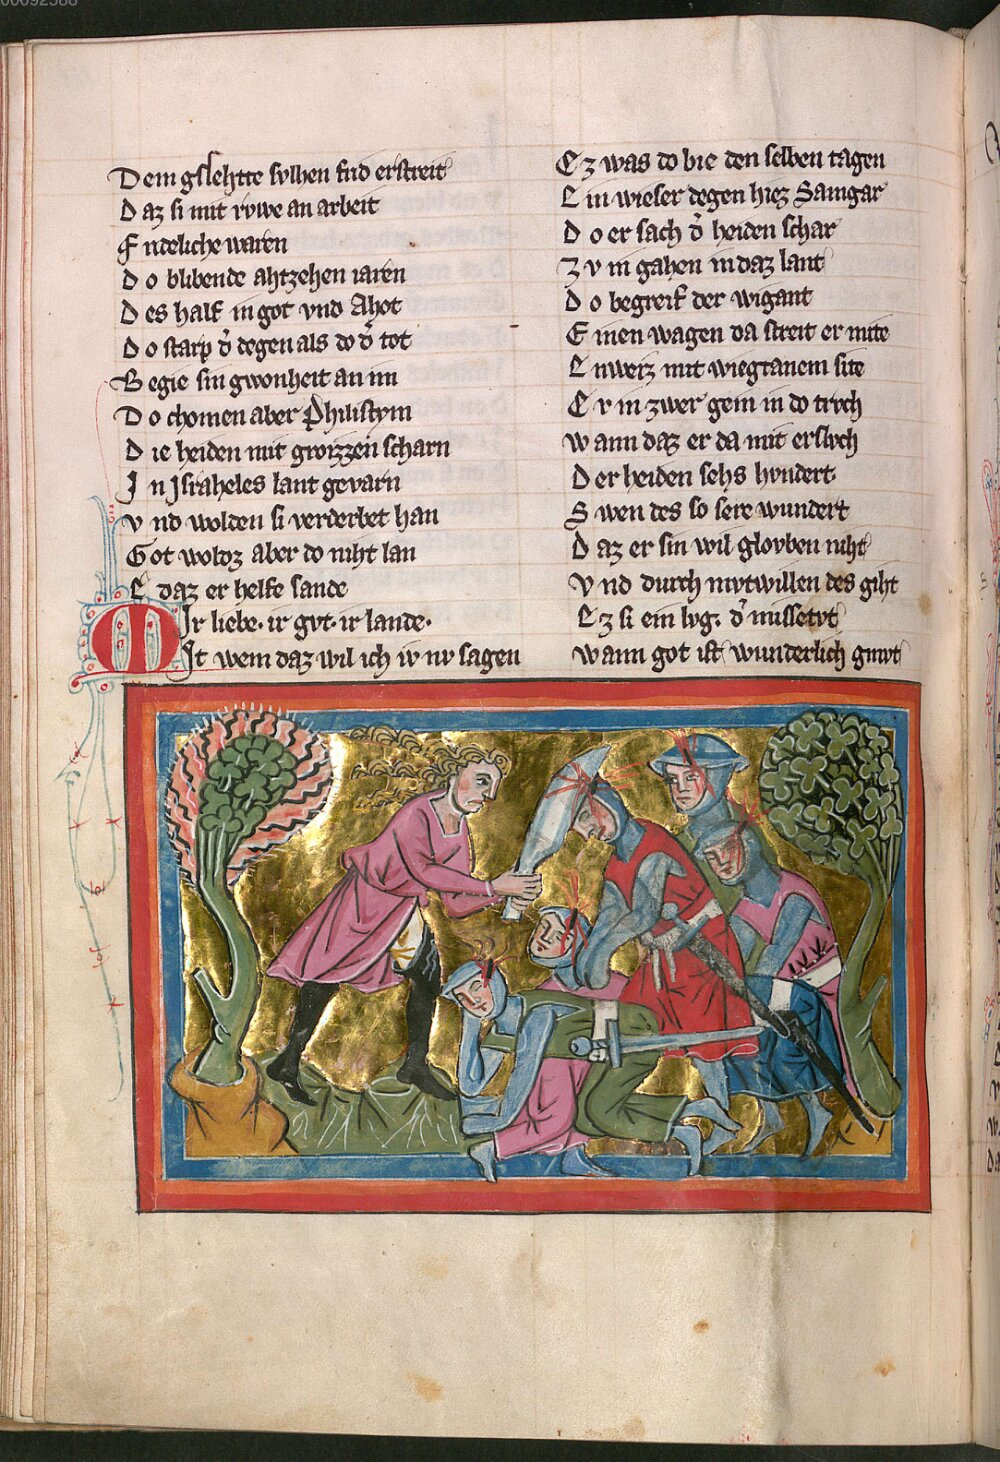 00092588
Dem gslehtte svlhen frid erstreit
Daz si mit rvwe an arbeit
Frideliche waren
Do blibende ahtzehen iaren
Des half in got vnd Ahot
Do starp d̾ degen als do d̾ tot
Begie sin gwonheit an im
Do chomen aber Philistym
Die heiden mit grozzen scharn
In Jsraheles lant gevarn
Vnd wolden si verderbet han
Got woldz aber do niht lan
E daz er helfe sande
Mir liebe· ir gvt· ir lande·
Mit wem daz wil ich iv nv sagen
Ez was do bie den selben tagen
Ein wieser degen hiez Samgar
Do er sach d̾ heiden schar
Zv in gahen in daz lant
Do begreif der wigant
Einen wagen da streit er mite
Entwerz mit wiegtanem site
Er in zwer gein in do trvch
Wann daz er da mit erslvch
Der heiden sehs hvndert
Swen des so sere wundert
Daz er sin wil glovben niht
Vnd durch mvtwillen des giht
Ez si ein lvg· d̾ missetvt
Wann got ist wunderlich gmvt